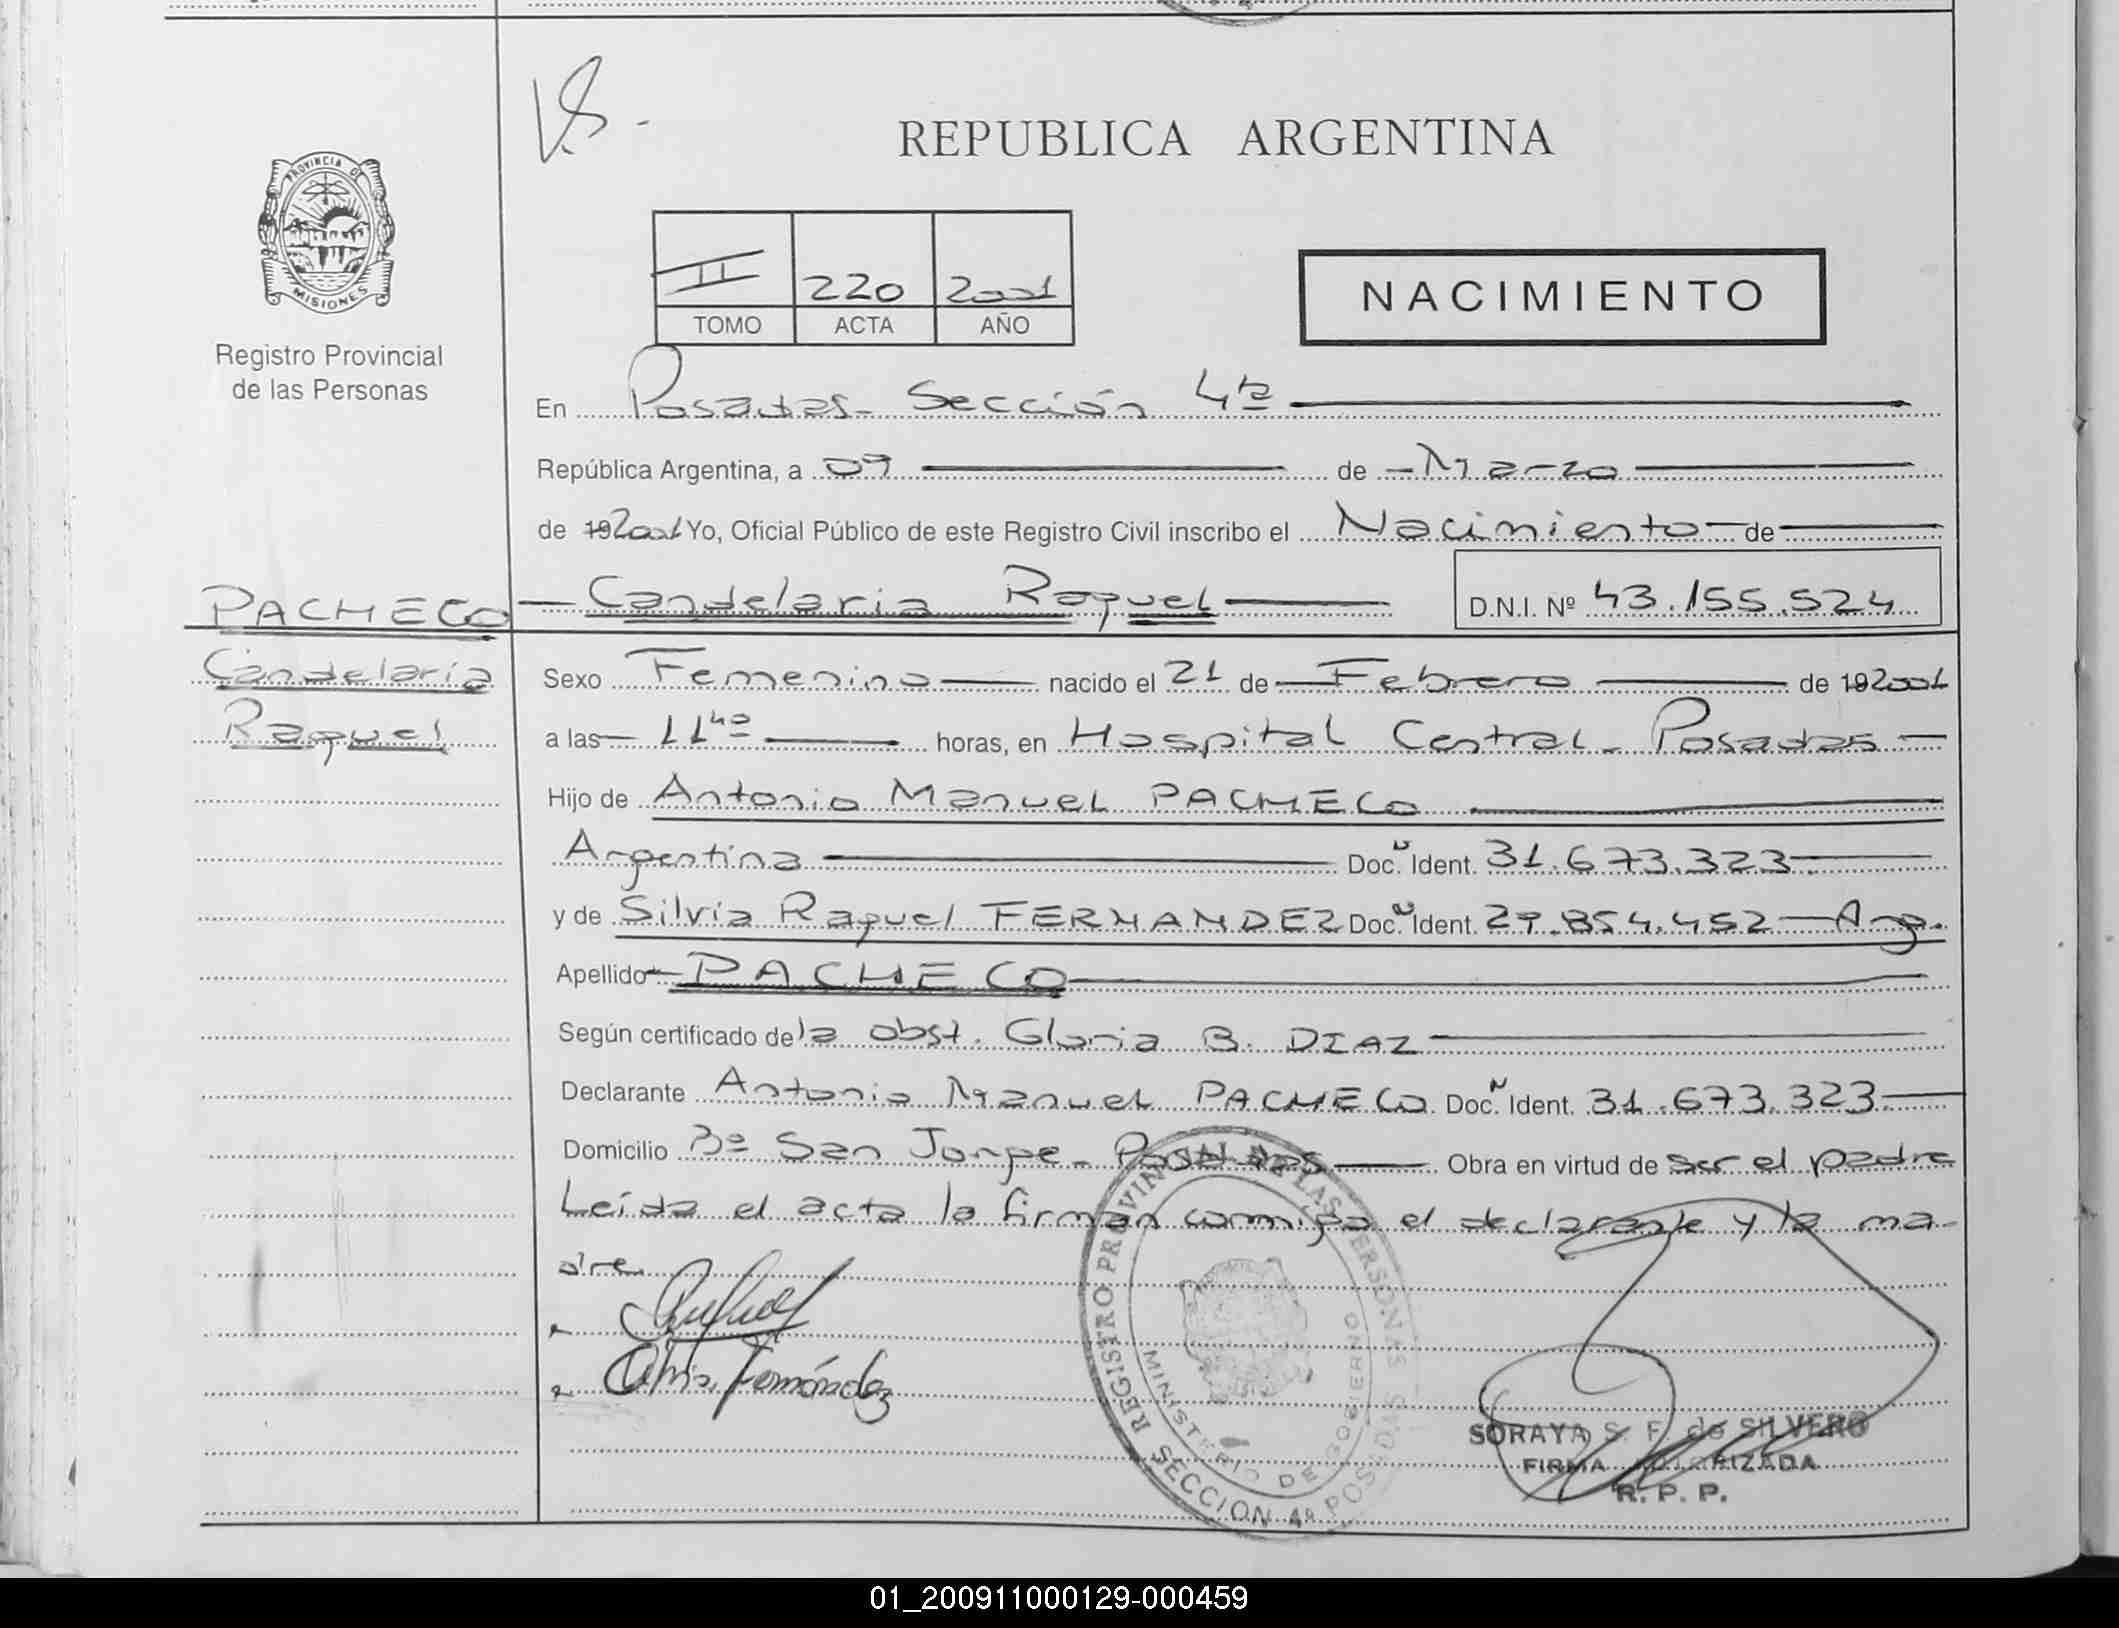 V.S.-
REPUBLICA ARGENTINA
PROVINCIA DE
MISIONES
Registro Provincial
de las Personas
II 220 2001
TOMO ACTA AÑO
NACIMIENTO
En Posadas- Sección 4ta
República Argentina, a 09 de Marzo
de 192001 Yo, Oficial Público de este Registro Civil inscribo el Nacimiento de
PACHECO Candelaria Raquel D.N.I. Nº 43.155.524
Candelaria Sexo Femenino nacido el 21 de Febrero de 192001
Raquel a las 11 horas, en Hospital Central- Posadas
Hijo de Antonio Manuel PACHECO
Argentina Doc. Ident. 31.673.323
y de Silvia Raquel FERNANDEZ Doc. Ident. 29.854.452 - Arg.
Apellido PACHECO
Según certificado de la obst. Gloria B. DIAZ
Declarante Antonio Manuel PACHECO Doc. Ident. 31.673.323
Domicilio Bº San Jorge- Posadas Obra en virtud de ser el padre
Leída el acta la firman conmigo el declarante y la ma-
dre
Fernández
REGISTRO PROVINCIAL DE LAS PERSONAS
MINISTERIO DE GOBIERNO
SECCION 4ª POSADAS
SORAYA S. F. de SILVERO
FIRMA AUTORIZADA
R. P. P.
01_200911000129-000459